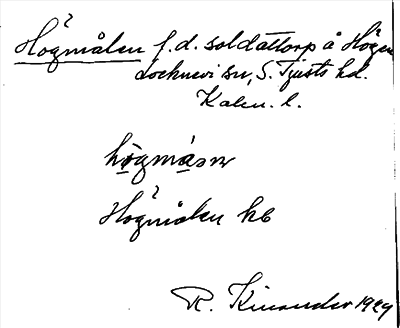 Högmålen f.d. soldattorp å Högen
Locknevi sn, S. Tjusts hd.
Kalm. l.
högmåsn
Högmålen kb
R. Kinander 1929